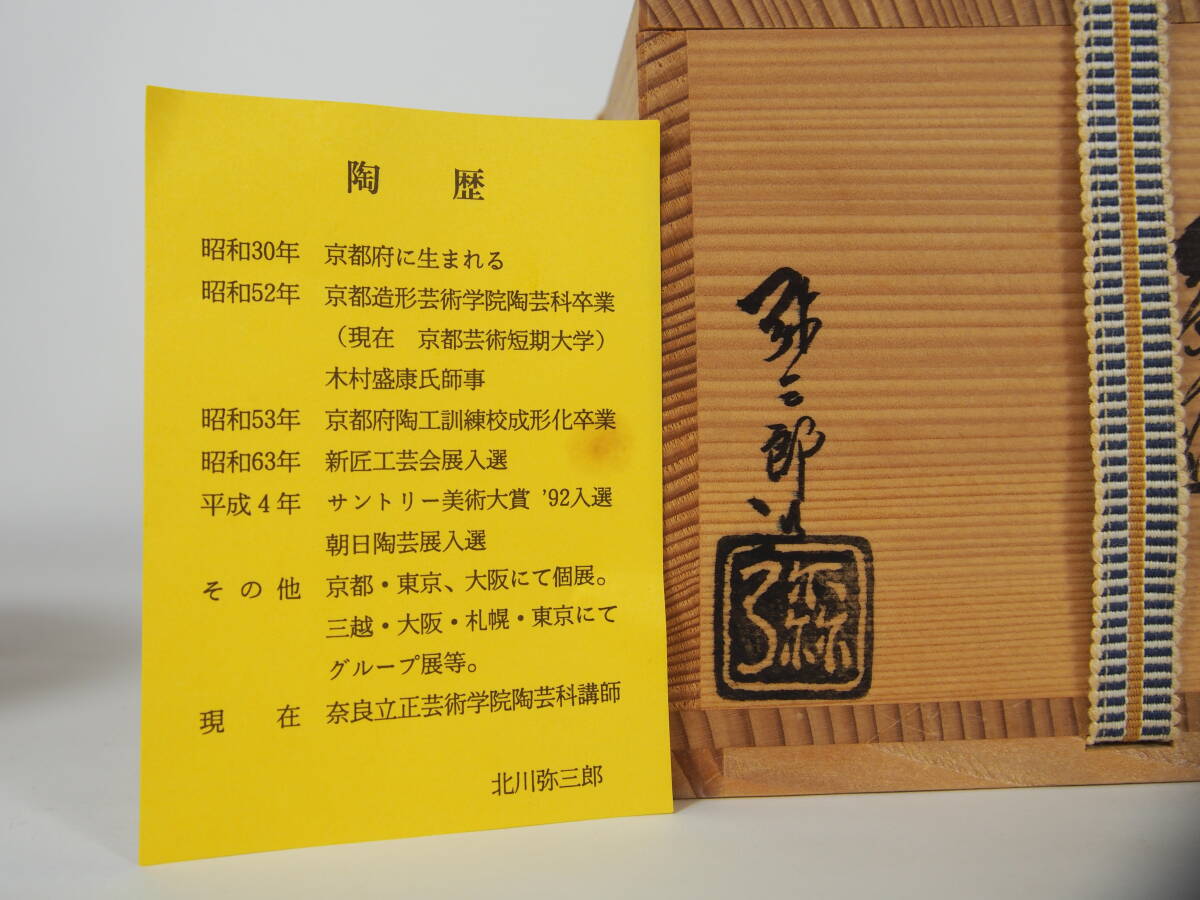 陶 歴
昭和30年 京都府に生まれる
昭和52年 京都造形芸術学院陶芸科卒業
（現在 京都芸術短期大学）
木村盛康氏師事
昭和53年 京都府陶工訓練校成形化卒業
昭和63年 新匠工芸会展入選
平成4年 サントリー美術大賞 '92入選
朝日陶芸展入選
その他 京都・東京、大阪にて個展。
三越・大阪・札幌・東京にて
グループ展等。
現在 奈良立正芸術学院陶芸科講師
北川弥三郎
弥三郎造
弥